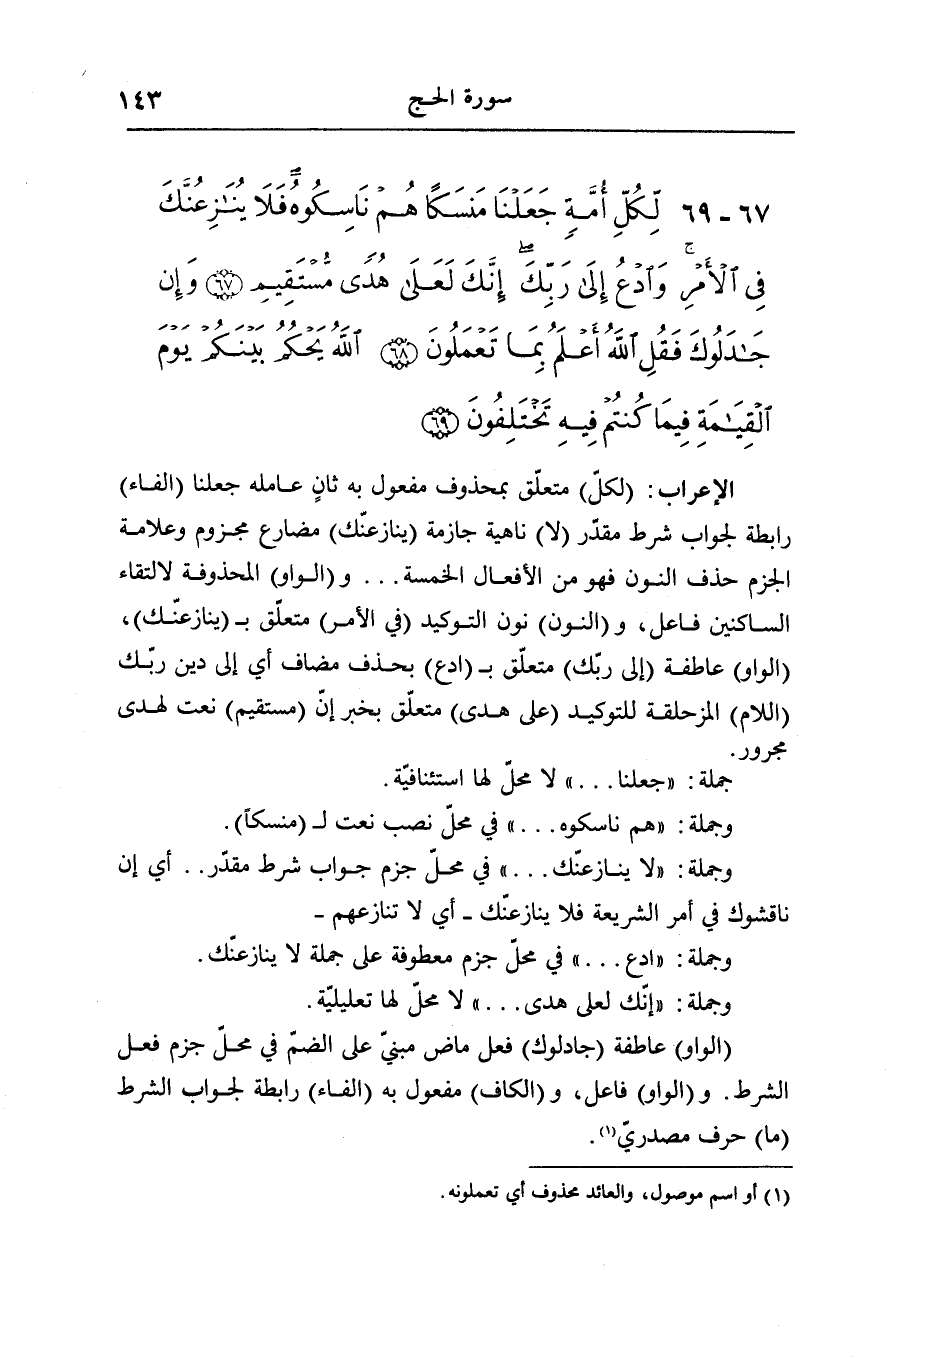 سورة الحج ١٤٣
٦٧ ـ ٦٩ لِّكُلِّ أُمَّةٍ جَعَلْنَا مَنسَكًا هُمْ نَاسِكُوهُ ۖ فَلَا يُنَٰزِعُنَّكَ
فِى ٱلْأَمْرِ ۚ وَٱدْعُ إِلَىٰ رَبِّكَ ۖ إِنَّكَ لَعَلَىٰ هُدًى مُّسْتَقِيمٍ ﴿٦٧﴾ وَإِن
جَٰدَلُوكَ فَقُلِ ٱللَّهُ أَعْلَمُ بِمَا تَعْمَلُونَ ﴿٦٨﴾ ٱللَّهُ يَحْكُمُ بَيْنَكُمْ يَوْمَ
ٱلْقِيَٰمَةِ فِيمَا كُنتُمْ فِيهِ تَخْتَلِفُونَ ﴿٦٩﴾
الإعراب: (لكلّ) متعلّق بمحذوف مفعول به ثانٍ عامله جعلنا (الفاء)
رابطة لجواب شرط مقدّر (لا) ناهية جازمة (ينازعنّك) مضارع مجزوم وعلامة
الجزم حذف النون فهو من الأفعال الخمسة... و(الواو) المحذوفة لالتقاء
الساكنين فاعل، و(النون) نون التوكيد (في الأمر) متعلّق بـ (ينازعنّك)،
(الواو) عاطفة (إلى ربّك) متعلّق بـ (ادع) بحذف مضاف أي إلى دين ربّك
(اللام) المزحلقة للتوكيد (على هدى) متعلّق بخبر إنّ (مستقيم) نعت لهدى
مجرور.
جملة: «جعلنا...» لا محلّ لها استئنافيّة.
وجملة: «هم ناسكوه...» في محلّ نصب نعت لـ (منسكاً).
وجملة: «لا ينازعنّك...» في محلّ جزم جواب شرط مقدّر.. أي إن
ناقشوك في أمر الشريعة فلا ينازعنّك ـ أي لا تنازعهم ـ
وجملة: «ادع...» في محلّ جزم معطوفة على جملة لا ينازعنّك.
وجملة: «إنّك لعلى هدى...» لا محلّ لها تعليليّة.
(الواو) عاطفة (جادلوك) فعل ماض مبنيّ على الضمّ في محلّ جزم فعل
الشرط. و(الواو) فاعل، و(الكاف) مفعول به (الفاء) رابطة لجواب الشرط
(ما) حرف مصدريّ(١).
(١) أو اسم موصول، والعائد محذوف أي تعملونه.